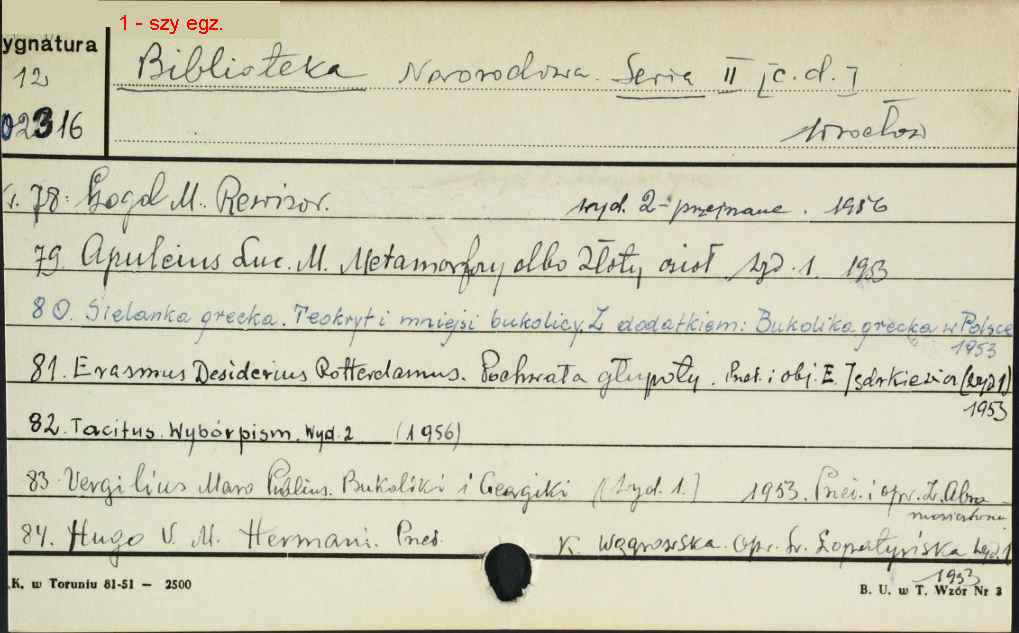 1 - szy egz.
ygnatura
12
02316
Biblioteka Narodowa. Seria II [c.d.]
Wrocław
78. Gogol M. Rewizor. wyd. 2 przejrzane. 1956
79. Apuleius Luc. M. Metamorfozy albo Złoty osioł wyd. 1. 1953
80. Sielanka grecka. Teokryt i mniejsi bukolicy. Z dodatkiem: Bukolika grecka w Polsce
1953
81. Erasmus Desiderius Rotterdamus. Pochwała głupoty. Przeł. i obj. E. Jędrkiewicz (wyd 1)
1953
82. Tacitus. Wybór pism. Wyd. 2 (1956)
83. Vergilius Maro Publius. Bukoliki i Georgiki (wyd. 1.] 1953. Przeł. i opr. Z. Abra
mowiczówna
84. Hugo V. M. Hernani. Przeł. K. Węgrowska. Opr. Łopatyńska wyd. 1
1953
K. w Toruniu 81-51 — 2500
B. U. w T. Wzór Nr 3